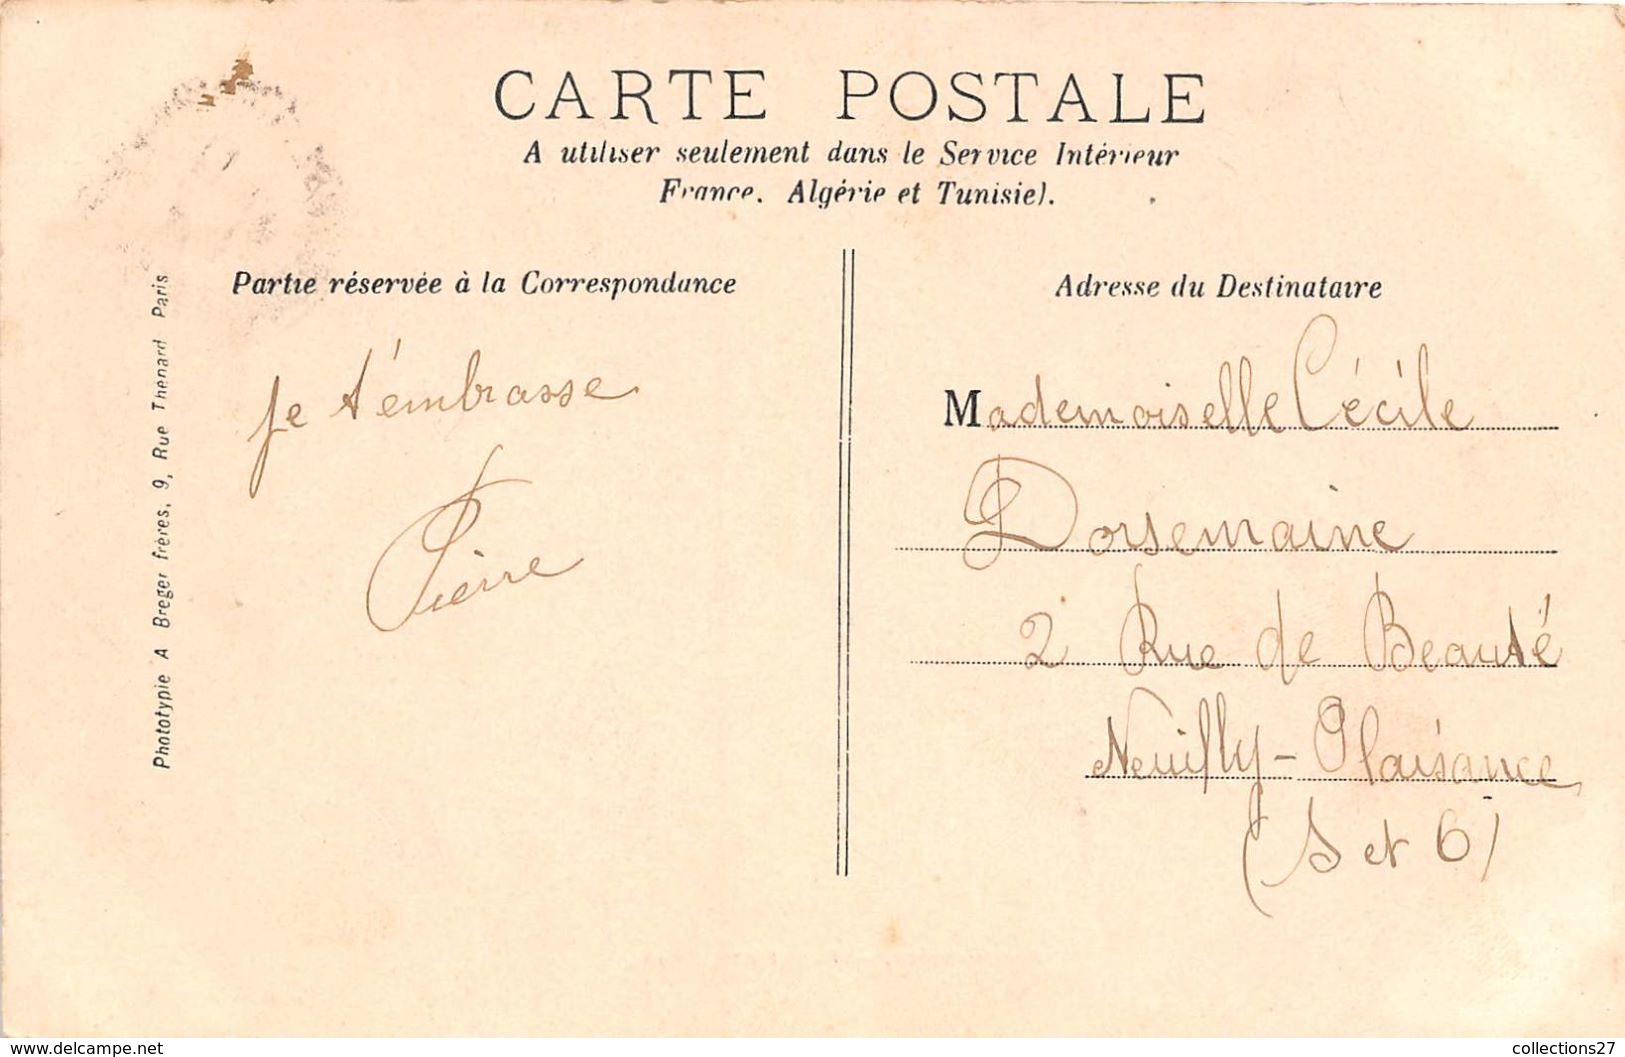 CARTE POSTALE
A utiliser seulement dans le Service Intérieur
France. Algérie et Tunisie).
Partie réservée à la Correspondance
Adresse du Destinataire
Je t'embrasse
Pierre
Mademoiselle Cécile
Dorsemaine
2 Rue de Beauté
Neuilly-Plaisance
(S et O)
Phototypie A Breger frères, 9, Rue Thenard Paris
https://www.delcampe.net
collections27